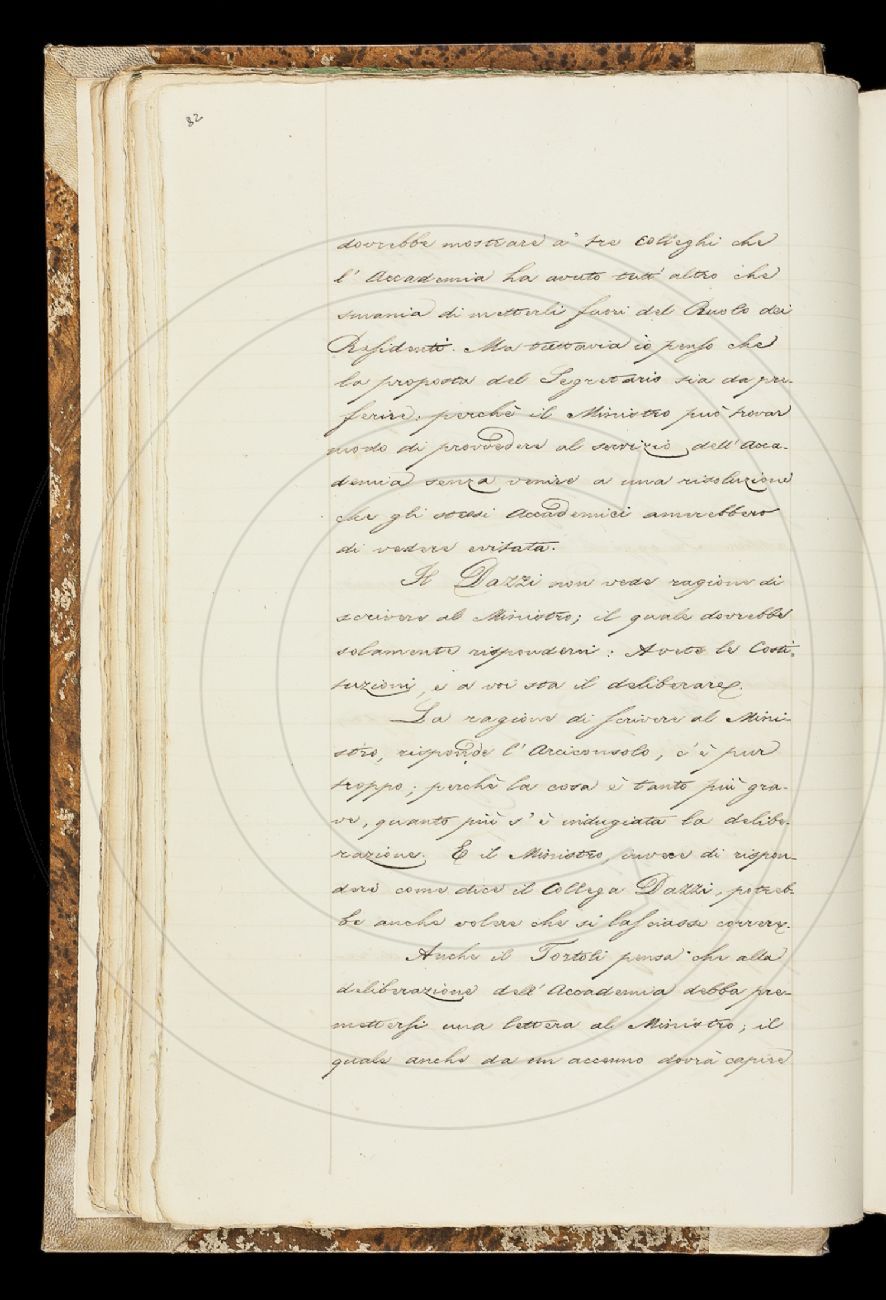 82
dovrebbe mostrare a' tre Colleghi che
l'Accademia ha avuto tutt'altro che
smania di metterli fuori del Ruolo dei
Residenti. Ma tuttavia io penso che
la proposta del Segretario sia da pre-
ferire, perchè il Ministro può trovar
modo di provvedere al servizio dell'Acca-
demia senza venire a una risoluzione
che gli stessi Accademici amerebbero
di vedere evitata.
Il Dazzi non vede ragione di
scrivere al Ministro; il quale dovrebbe
solamente rispondervi: Avete le Costi-
tuzioni, e a voi sta il deliberare.
La ragione di scrivere al Mini-
stro, risponde l'Arciconsolo, c'è pur
troppo; perchè la cosa è tanto più gra-
ve, quanto più s'è indugiata la delibe-
razione. E il Ministro, invece di rispon-
dere come dice il Collega Dazzi, potreb-
be anche volere che si lasciasse correre.
Anche il Tortoli pensa che alla
deliberazione dell'Accademia debba pre-
mettersi una lettera al Ministro; il
quale anche da un accenno dovrà capire